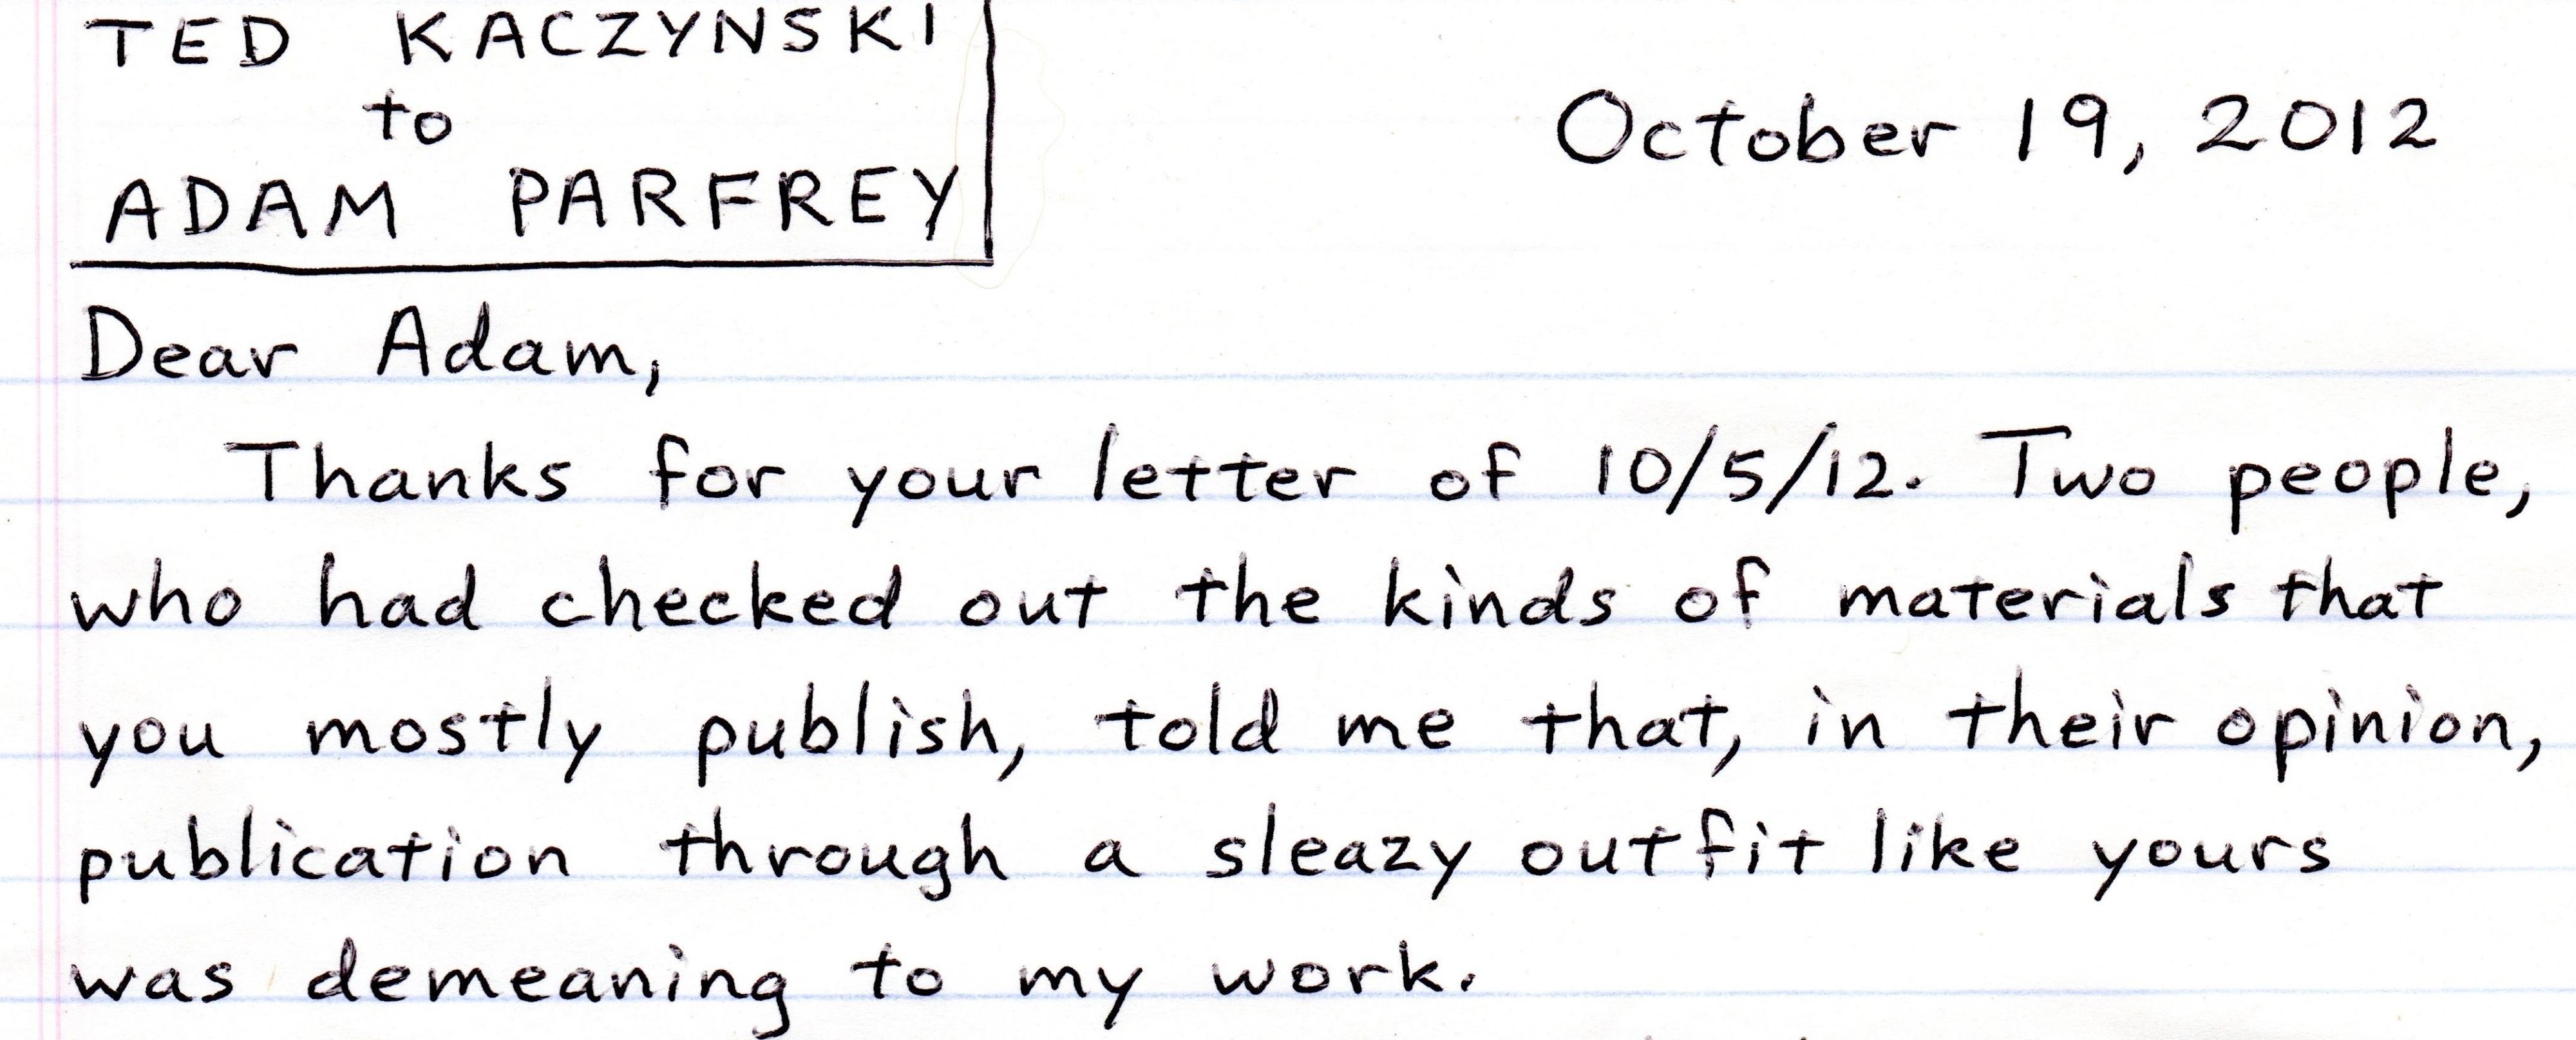 TED KACZYNSKI
to
ADAM PARFREY
October 19, 2012
Dear Adam,
Thanks for your letter of 10/5/12. Two people,
who had checked out the kinds of materials that
you mostly publish, told me that, in their opinion,
publication through a sleazy outfit like yours
was demeaning to my work.